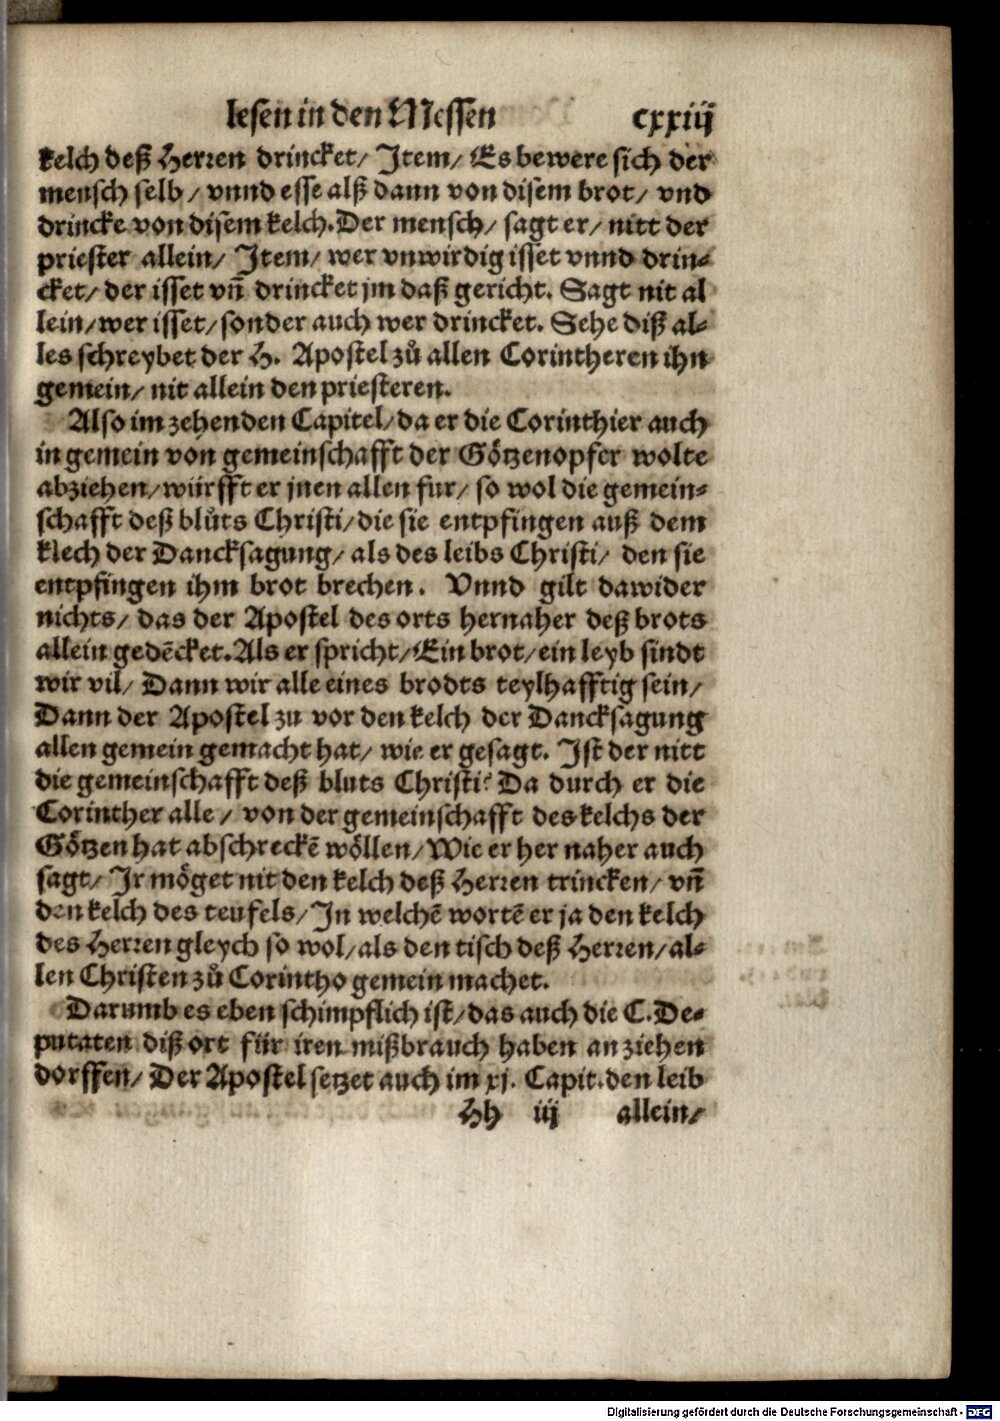 lesen in den Messen cxxiij
kelch deß Herren drincket/ Item/ Es bewere sich der
mensch selb/ vnnd esse alß dann von disem brot/ vnd
drincke von disem kelch. Der mensch/ sagt er/ nitt der
priester allein/ Item/ wer vnwirdig isset vnnd drin⸗
cket/ der isset vñ drincket jm daß gericht. Sagt nit al
lein/ wer isset/ sonder auch wer drincket. Sehe diß al⸗
les schreybet der H. Apostel zů allen Corintheren ihn
gemein/ nit allein den priesteren.
Also im zehenden Capitel/ da er die Corinthier auch
in gemein von gemeinschafft der Götzenopfer wolte
abziehen/ würfft er jnen allen fur/ so wol die gemein⸗
schafft deß blůts Christi/ die sie entpfingen auß dem
klech der Dancksagung/ als des leibs Christi/ den sie
entpfingen ihm brot brechen. Vnnd gilt dawider
nichts/ das der Apostel des orts hernaher deß brots
allein gedẽcket. Als er spricht/ Ein brot/ ein leyb sindt
wir vil/ Dann wir alle eines brodts teylhafftig sein/
Dann der Apostel zu vor den kelch der Dancksagung
allen gemein gemacht hat/ wie er gesagt. Ist der nitt
die gemeinschafft deß bluts Christi? Da durch er die
Corinther alle/ von der gemeinschafft des kelchs der
Götzen hat abschreckẽ wöllen/ Wie er her naher auch
sagt/ Ir möget nit den kelch deß Herren trincken/ vñ
den kelch des teufels/ In welchẽ wortẽ er ja den kelch
des Herren gleych so wol/ als den tisch deß Herren/ al⸗
len Christen zů Corintho gemein machet.
Darumb es eben schimpflich ist/ das auch die C. De⸗
putaten diß ort für iren mißbrauch haben anziehen
dorffen/ Der Apostel setzet auch im xj. Capit. den leib
Hh iij allein/
Digitalisierung gefördert durch die Deutsche Forschungsgemeinschaft - DFG